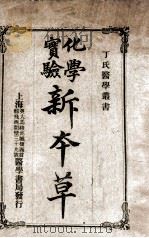 丁氏醫學叢書
化學實驗
新本草
上海
醫學書局發行